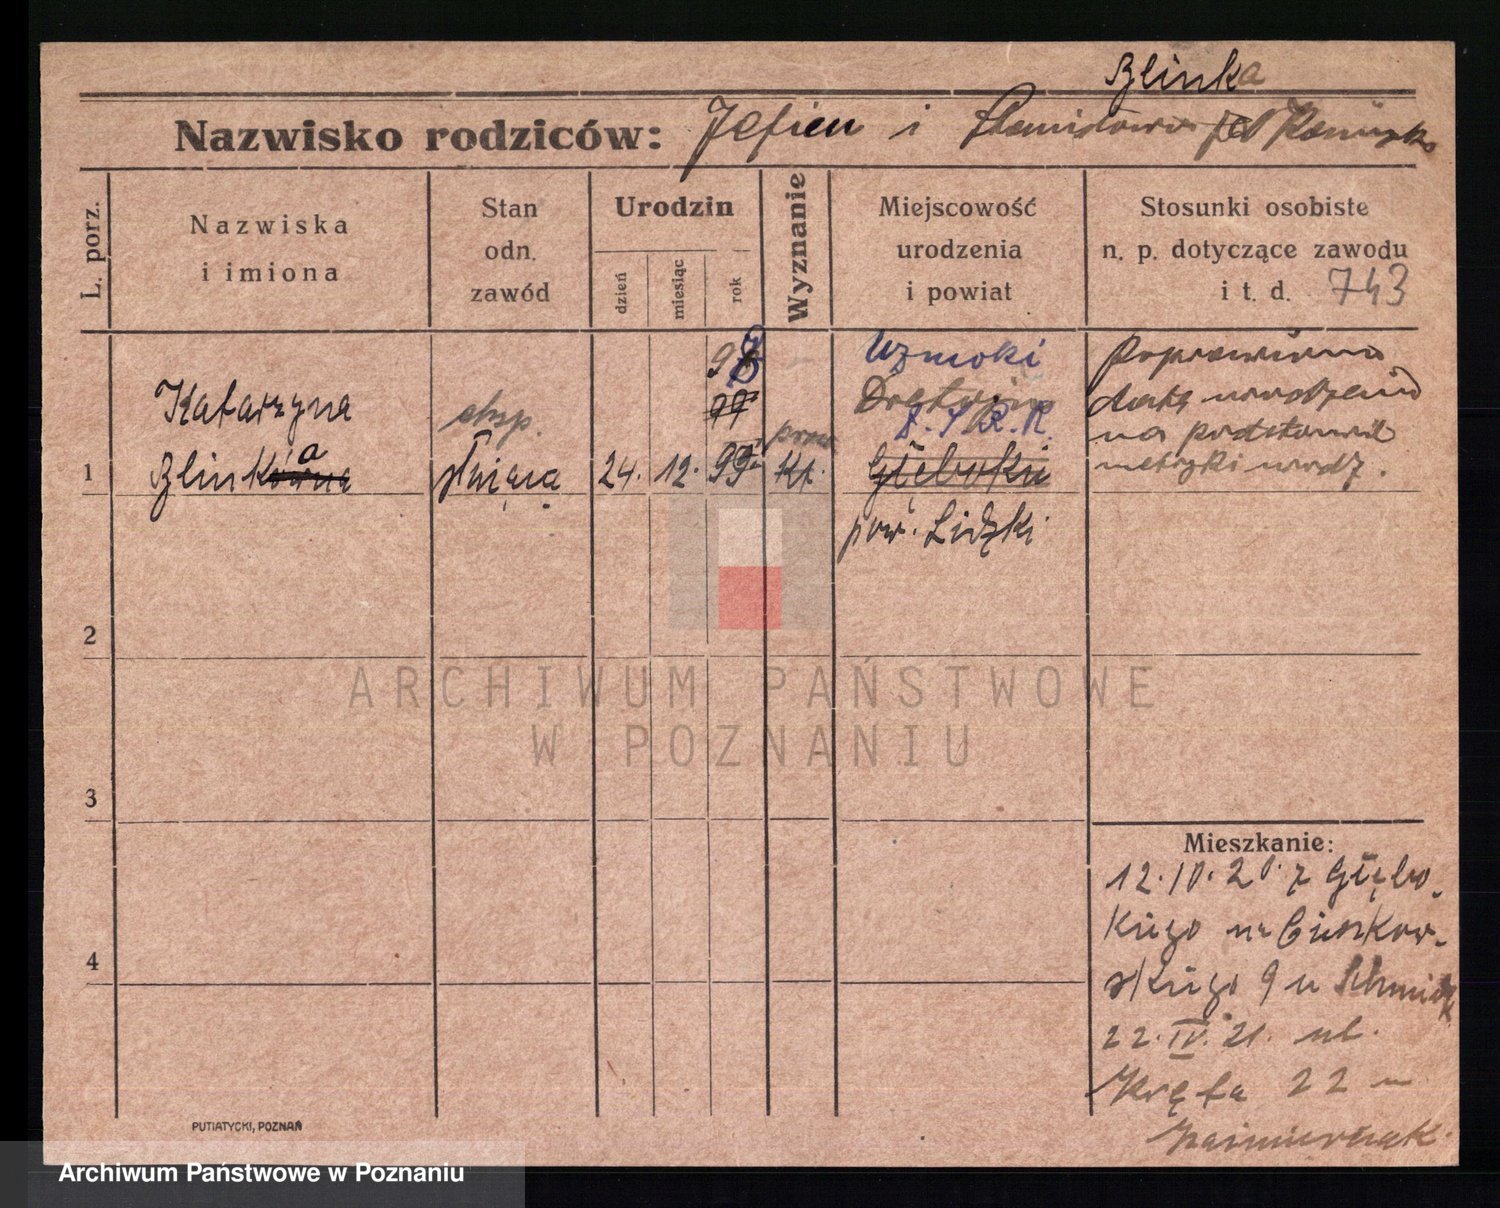 Blinka
Nazwisko rodziców: Jefien i Stanisława
L. porz.
Nazwiska
i imiona
Stan
odn.
zawód
Urodzin
dzień
miesiąc
rok
Wyznanie
Miejscowość
urodzenia
i powiat
Stosunki osobiste
n. p. dotyczące zawodu
i t. d. 743
1
Katarzyna
Blinkówna a
eksp.
służąca
24. 12. 99
97
praw
kt.
Uzmoki
Z. S. R. R.
Głębokie
pow. Lidzki
Poprawiono
datę urodzenia
na podstawie
metryki urodz.
2
3
4
Mieszkanie:
12.10.20. z Głębo-
kiego na Cieszkow-
skiego 9 u Schmidt
22.IV.21. ul.
Kręta 22 u
Kaźmierczak
PUTIATYCKI, POZNAŃ
ARCHIWUM PAŃSTWOWE
W POZNANIU
Archiwum Państwowe w Poznaniu